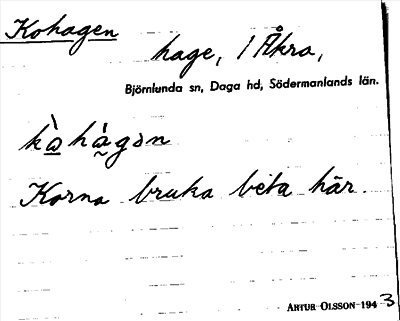 Kohagen
hage, i Åkra,
Björnlunda sn, Daga hd, Södermanlands län.
kò̲hà̰gən
Korna bruka beta här.
ARTUR OLSSON 1943